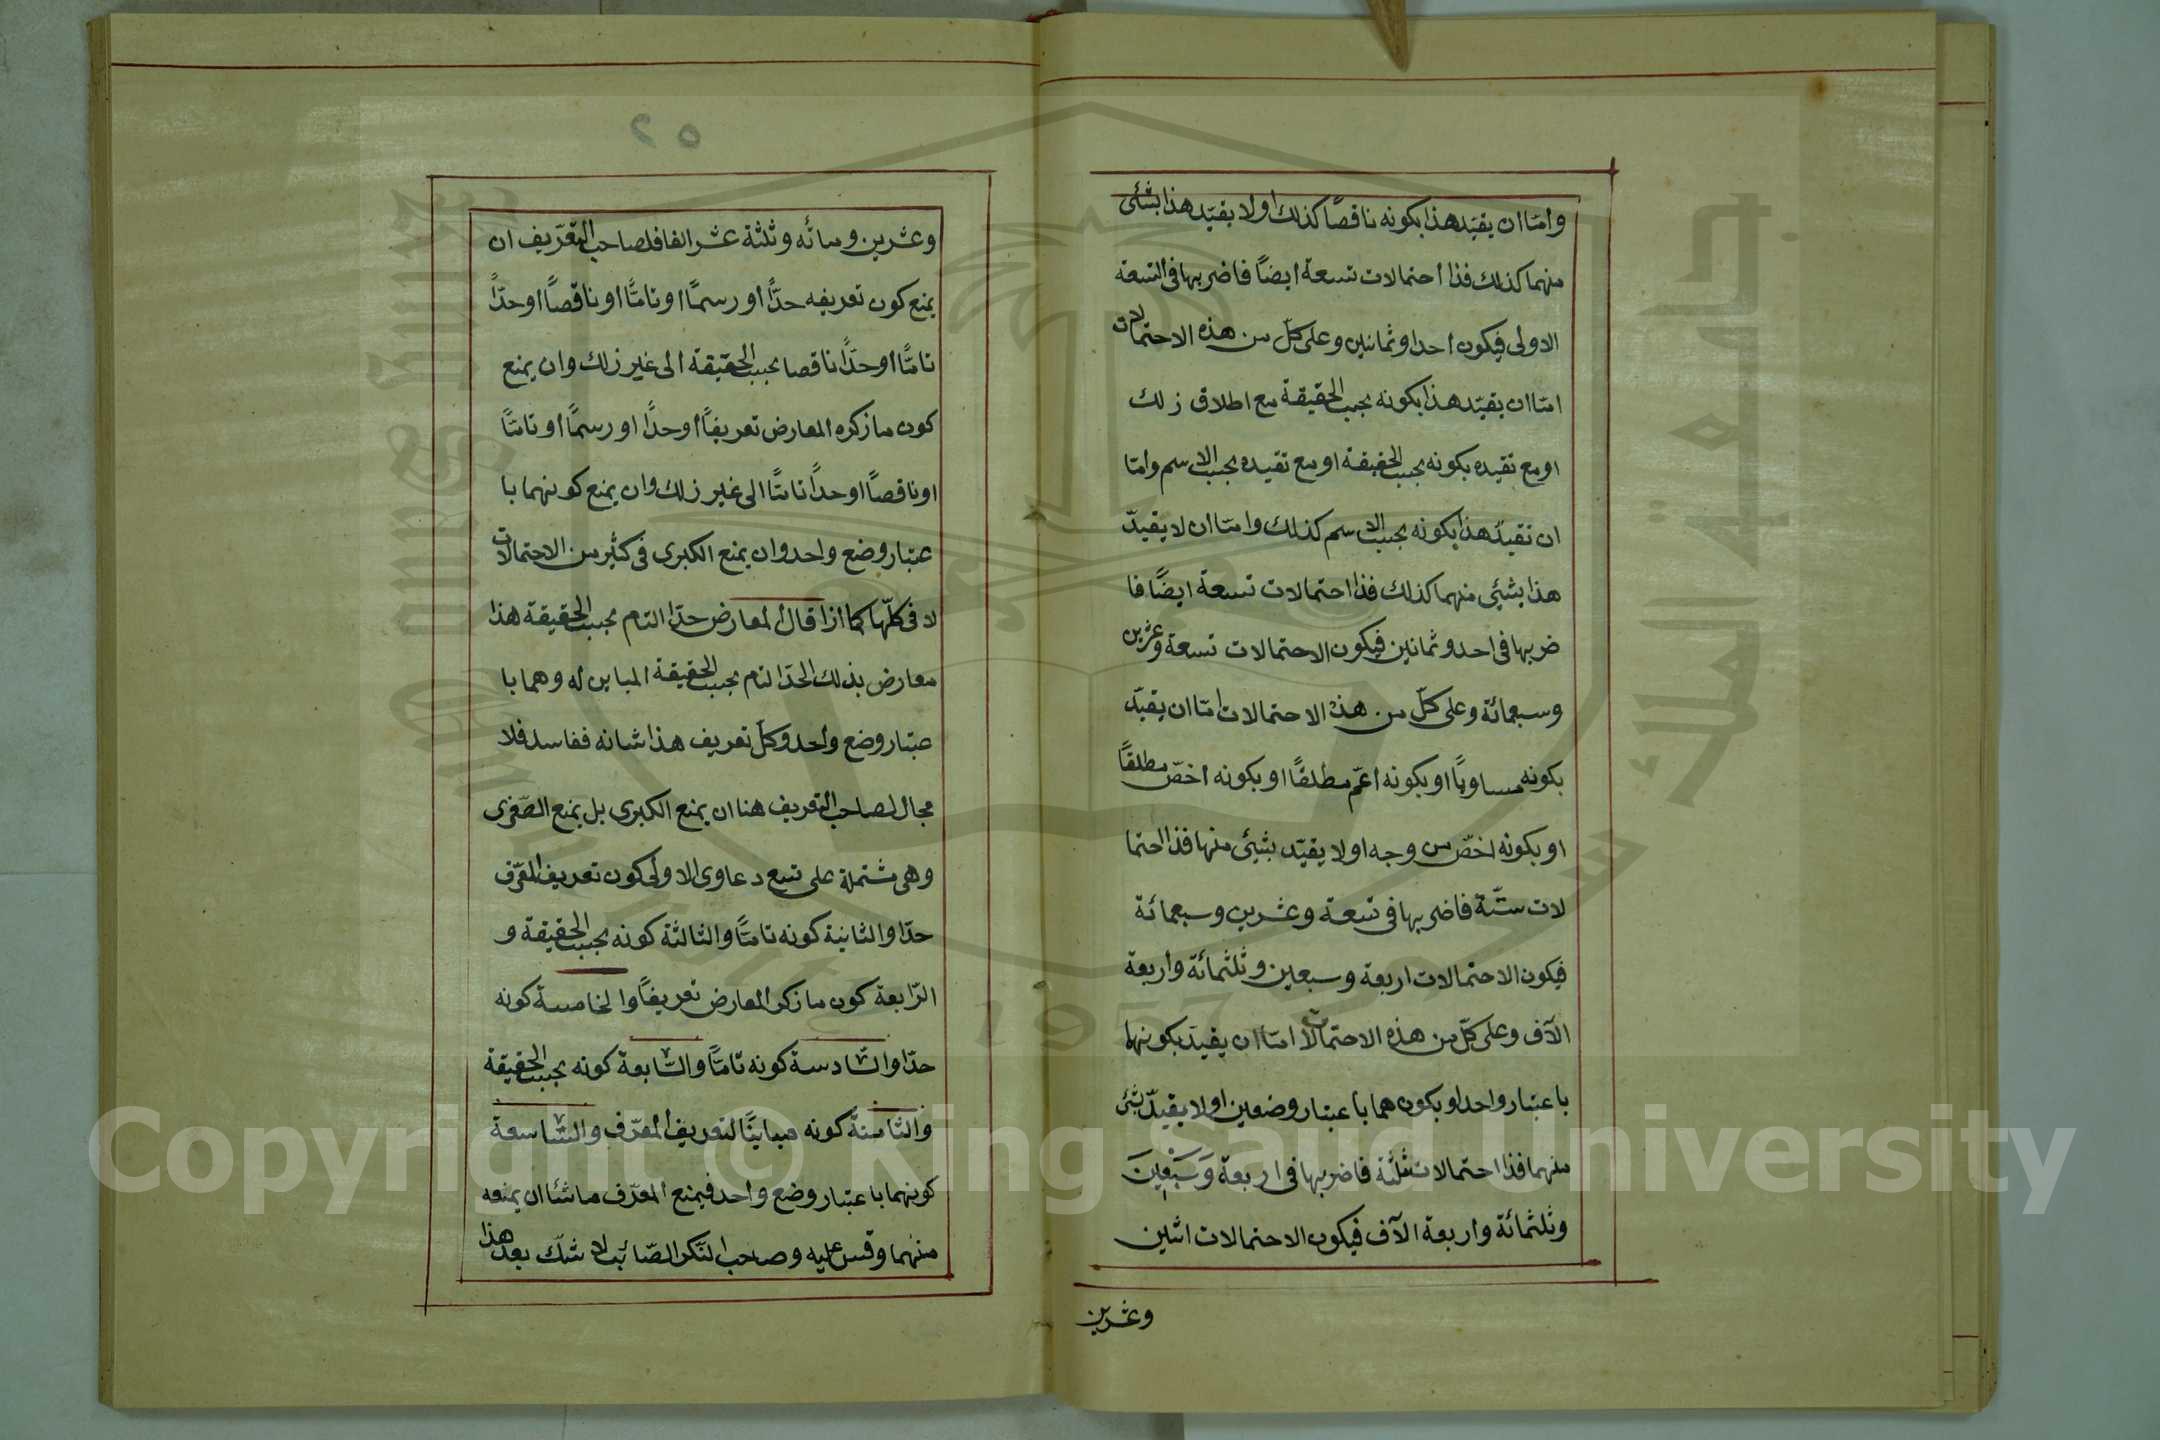 وامّا ان يقيّد هذا بكونه ناقصًا كذلك او لا يقيّد هذا بشئى
منهما كذلك فذا احتمالات تسعة ايضًا فاضربها فى التسعة
الاولى فيكون احدا وثمانين وعلى كلّ من هذه الاحتمالات
امّا ان يقيّد هذا بكونه بحسب الحقيقة مع اطلاق ذلك
او مع تقيده بكونه بحسب الحقيقة او مع تقيده بحسب الاسم وامّا
ان تقيدّ هذا بكونه بحسب الاسم كذلك وامّا ان لا يقيدّ
هذا بشيئى منهما كذلك فذا احتمالات تسعة ايضًا فا
ضربها فى احد وثمانين فيكون الاحتمالات تسعة وعشرين
وسبعمائة وعلى كلّ من هذه الاحتمالات امّا ان يقيّد
بكونه مساويًا او بكونه اعمّ مطلقًا او بكونه اخصّ مطلقًا
او بكونه اخصّ من وجه او لا يقيّد بشيئى منها فذا احتما
لات ستّة فاضربها فى تسعة وعشرين وسبعمائة
فيكون الاحتمالات اربعة وسبعين وثلثمائة واربعة
الآف وعلى كلّ من هذه الاحتمالات امّا ان يقيدّ بكونها
باعتبار واحد او بكون هما باعتبار وضعين او لا يقيدّ بشئ
منهما فذا احتمالات ثلثة فاضربها فى اربعة وَسَبْعِينَ
وثلثمائة واربعة الآف فيكون الاحتمالات اثنين
وعشرين
٥٢
وعشرين ومائه وثلثة عشر الفا فلصاحب التعرّيف ان
يمنع كون تعريفه حدًّا او رسمًا او تامًّا او ناقصًا او حدّاً
تامًّا او حدًّا ناقصا بحسب الحقيقة الى غير زلك وان يمنع
كون ما زكره المعارض تعريفًا او حدًّا او رسمًا او تامًّا
او ناقصًا او حدًّا تامًّا الى غير زلك وان يمنع كونهما با
عتبار وضع واحد وان يمنع الكبرى فى كثير من الاحتمالات
لا فى كلّها كما ازا قال المعارض حدّا التام بحسب الحقيقة هذا
معارض بذلك الحدّ التام بحسب الحقيقة المباين له وهما با
عتبار وضع واحد وكلّ تعريف هذا شانه ففاسد فلا
مجال لصاحب التعريف هنا ان يمنع الكبرى بل يمنع الصّغرى
وهى مشتملة على تسع دعاوى الاولى كون تعريف المعّرف
حدّا والثانية كونه تامًّا والثالثة كونه بحسب الحقيقة و
الرّابعة كون ما زكر المعارض تعريفًا والخامسة كونه
حدّا والسّادسة كونه تامًّا والسّابعة كونه بحسب الحقيقة
والثامنة كونه مباينًا لتعريف المعّرف والتّاسعة
كونهما باعتبار وضع واحد فيمنع المعّرف ما شئا ان يمنعه
منهما وقس عليه وصاحب الفّكر الصّائب لا شكّ بعد هذا
Copyright © King Saud University
جامعة
الملك سعود
King Saud University
1957